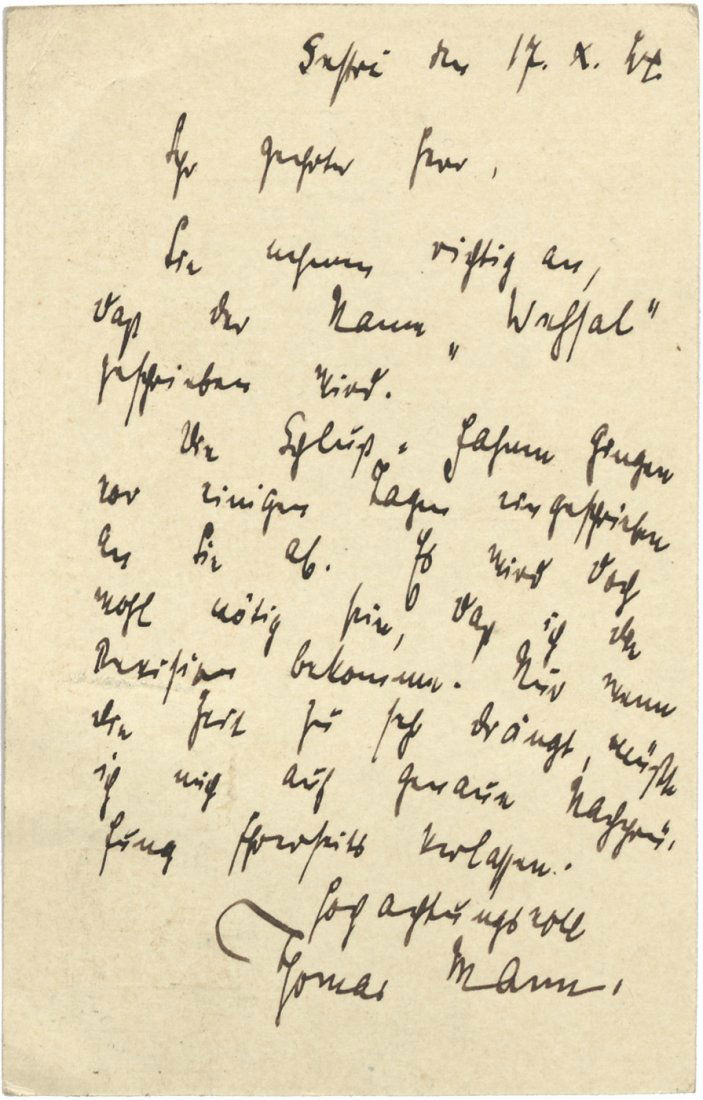 den 17. X. 24.
Sehr geehrter Herr,
Sie nehmen richtig an,
daß der Name „Wehsal"
geschrieben wird.
Die Schluß-Fahnen gingen
vor einigen Tagen eingeschrieben
an Sie ab. Es wird doch
wohl nötig sein, daß ich die
Revision bekomme. Nur wenn
die Zeit zu sehr drängt, müßte
ich mich auf genaue Nachprü-
fung Ihrerseits verlassen.
Hochachtungsvoll
Thomas Mann.